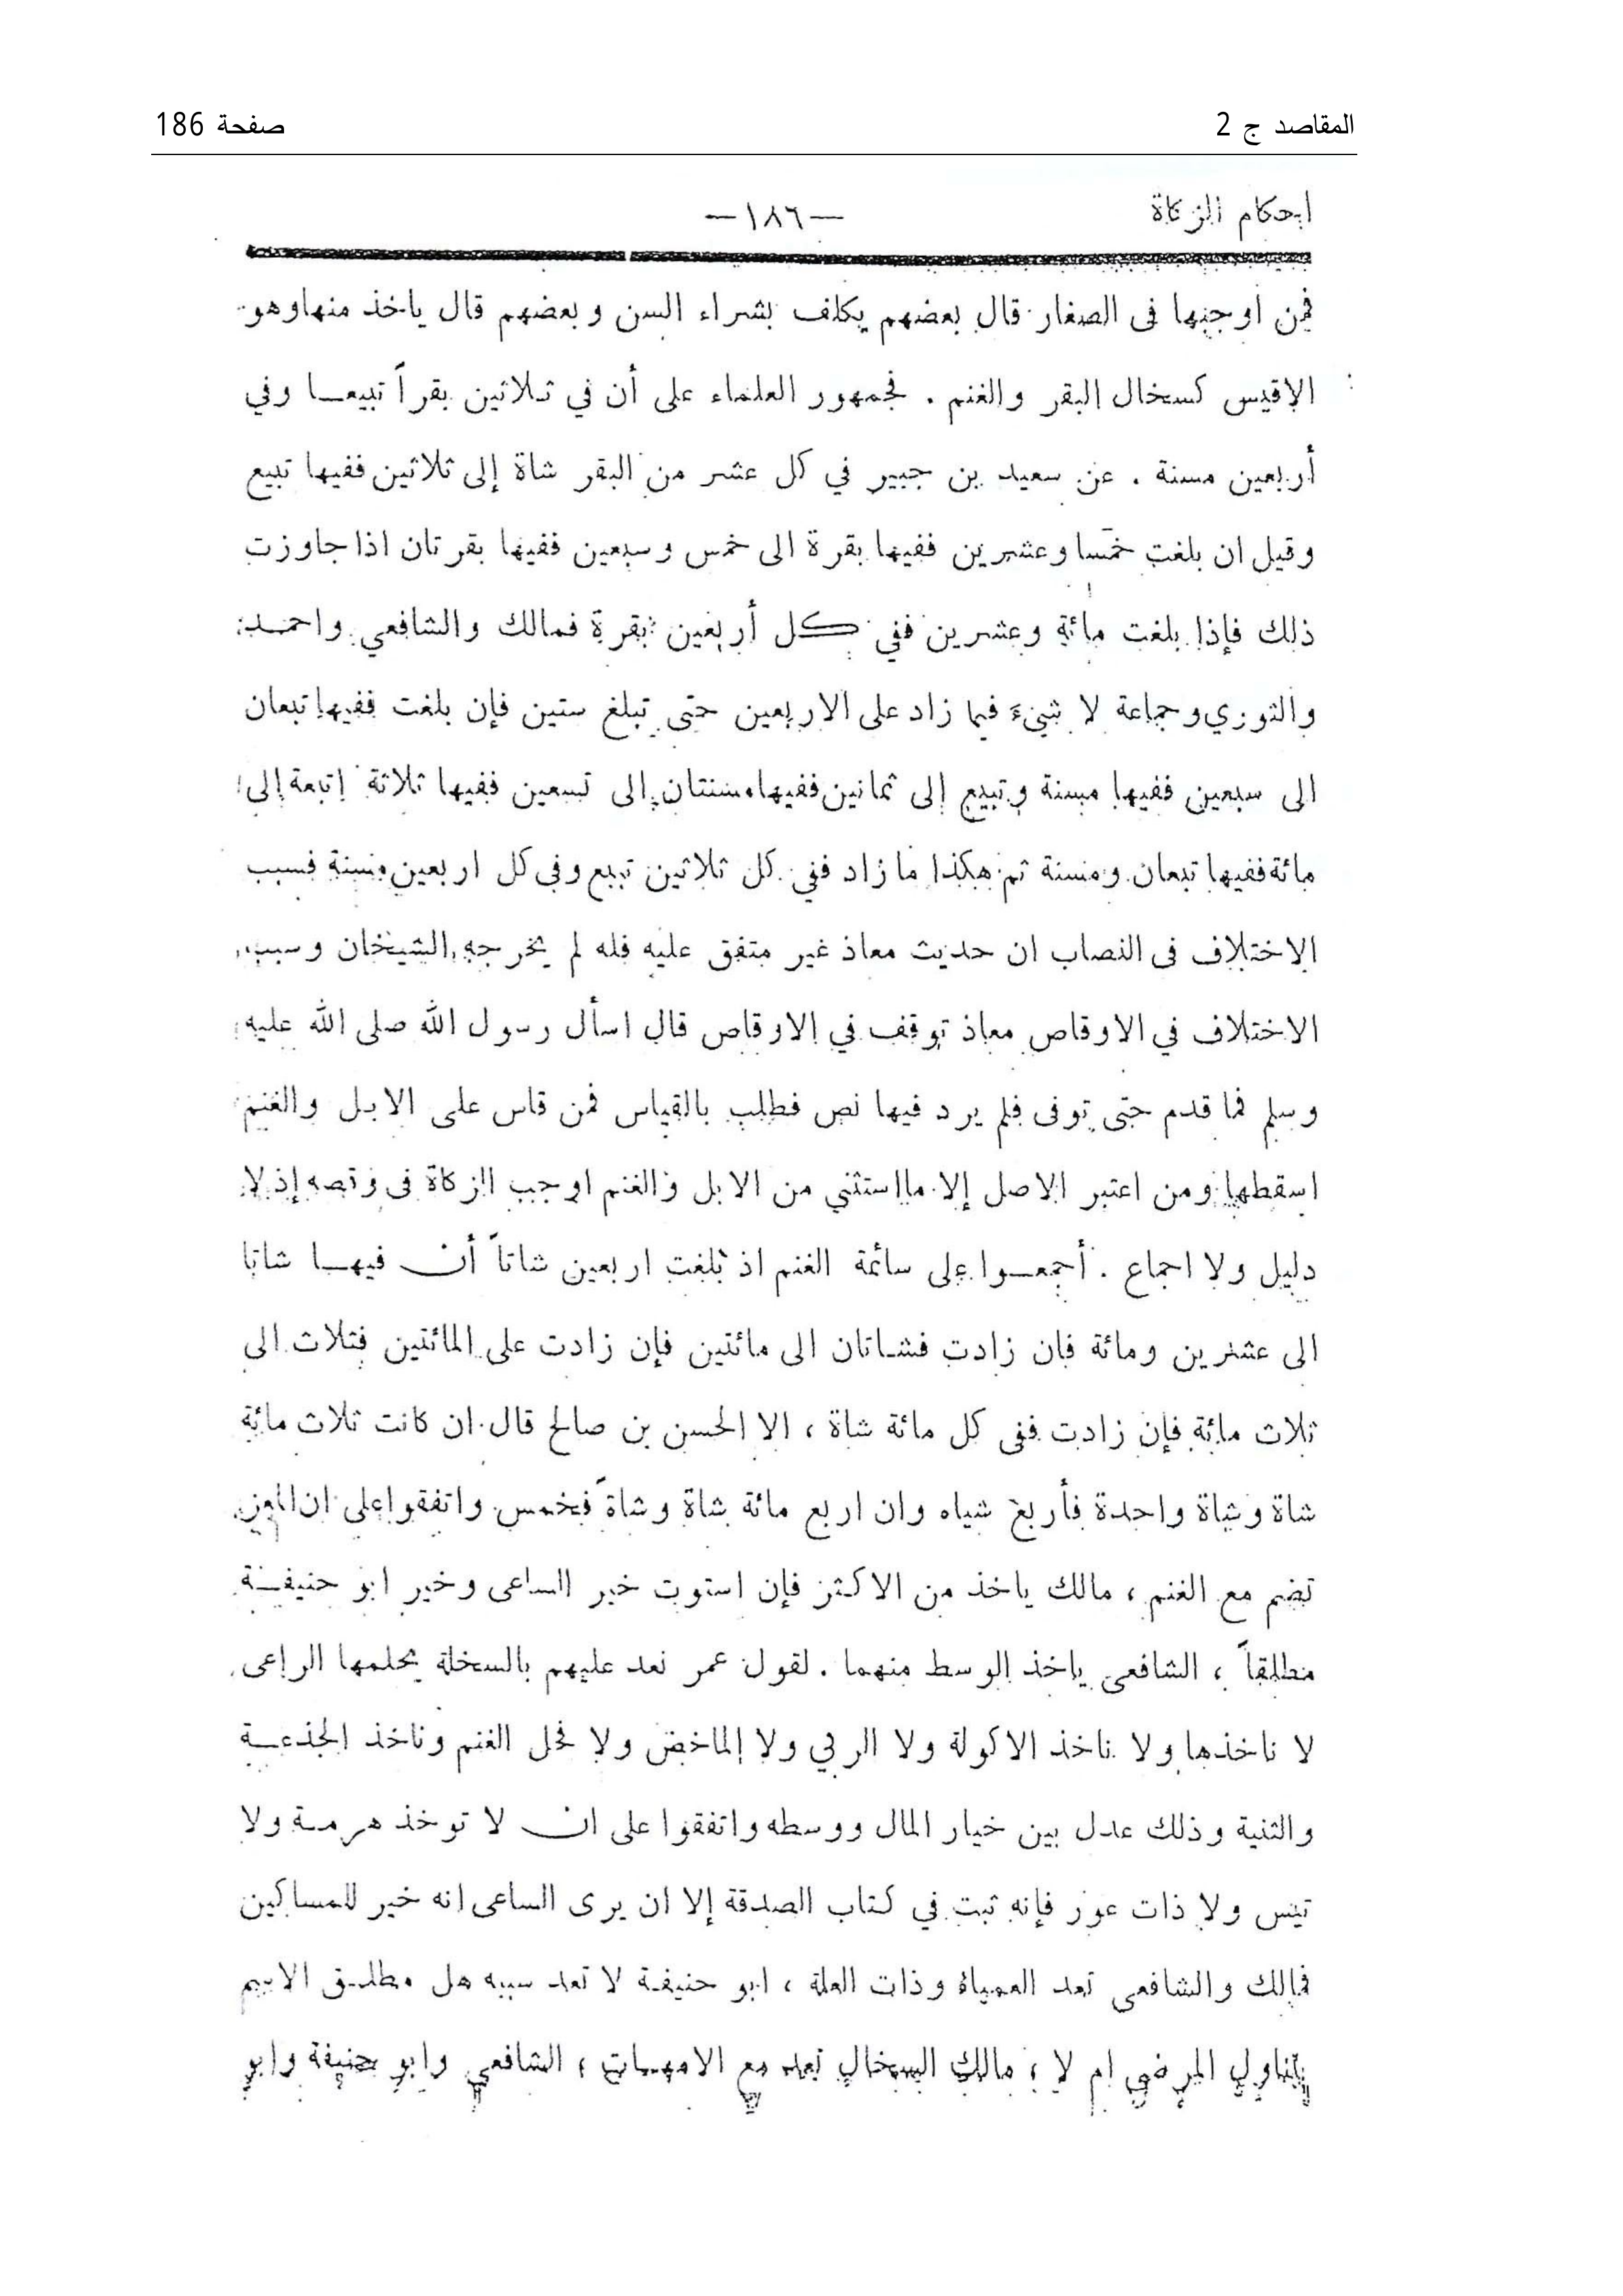 المقاصد ج 2
صفحة 186
احكام الزكاة
—١٨٦—
فمن اوجبها فى الصغار قال بعضهم يكلف بشراء السن وبعضهم قال ياخذ منها وهو
الاقيس كسخال البقر والغنم . فجمهور العلماء على أن في ثلاثين بقراً تبيعا وفي
أربعين مسنة . عن سعيد بن جبير في كل عشر من البقر شاة إلى ثلاثين ففيها تبيع
وقيل ان بلغت خمسا وعشرين ففيها بقرة الى خمس وسبعين ففيها بقرتان اذا جاوزت
ذلك فإذا بلغت مائة وعشرين ففي كل أربعين بقرة فمالك والشافعي واحمد
والثوري وجماعة لا شيء فيما زاد على الاربعين حتى تبلغ ستين فإن بلغت ففيها تبعان
الى سبعين ففيها مسنة وتبيع إلى ثمانين ففيها مسنتان إلى تسعين ففيها ثلاثة إتبعة إلى
مائة ففيها تبعان ومسنة ثم هكذا ما زاد ففي كل ثلاثين تبيع وفى كل اربعين مسنة فسبب
الاختلاف فى النصاب ان حديث معاذ غير متفق عليه فله لم يخرجه الشيخان وسبب
الاختلاف في الاوقاص معاذ توقف في الاوقاص قال اسأل رسول الله صلى الله عليه
وسلم فما قدم حتى توفى فلم يرد فيها نص فطلب بالقياس فمن قاس على الابل والغنم
اسقطها ومن اعتبر الاصل إلا ما استثني من الابل والغنم اوجب الزكاة فى وقصه إذ لا
دليل ولا اجماع . أجمعوا على سائمة الغنم اذ بلغت اربعين شاتاً أن فيها شاتا
الى عشرين ومائة فان زادت فشاتان الى مائتين فإن زادت على المائتين فثلاث الى
ثلاث مائة فإن زادت ففى كل مائة شاة ، الا الحسن بن صالح قال ان كانت ثلاث مائة
شاة وشاة واحدة فأربع شياه وان اربع مائة شاة وشاة فخمس واتفقوا على ان المعز
تضم مع الغنم ، مالك ياخذ من الاكثر فإن استوت خير الساعى وخير ابو حنيفة
مطلقاً ، الشافعى ياخذ الوسط منهما . لقول عمر نعد عليهم بالسخلة يحلمها الراعى
لا ناخذها ولا ناخذ الاكولة ولا الربي ولا الماخض ولا فحل الغنم وناخذ الجذعة
والثنية وذلك عدل بين خيار المال ووسطه واتفقوا على ان لا توخذ هرمة ولا
تيس ولا ذات عور فإنه ثبت في كتاب الصدقة إلا ان يرى الساعى انه خير للمساكين
فمالك والشافعى تعد العمياء وذات العلة ، ابو حنيفة لا تعد سببه هل مطلق الاسم
يتناول المرضى ام لا ؛ مالك السخال تعد مع الامهات ؛ الشافعي وابو حنيفة وابو